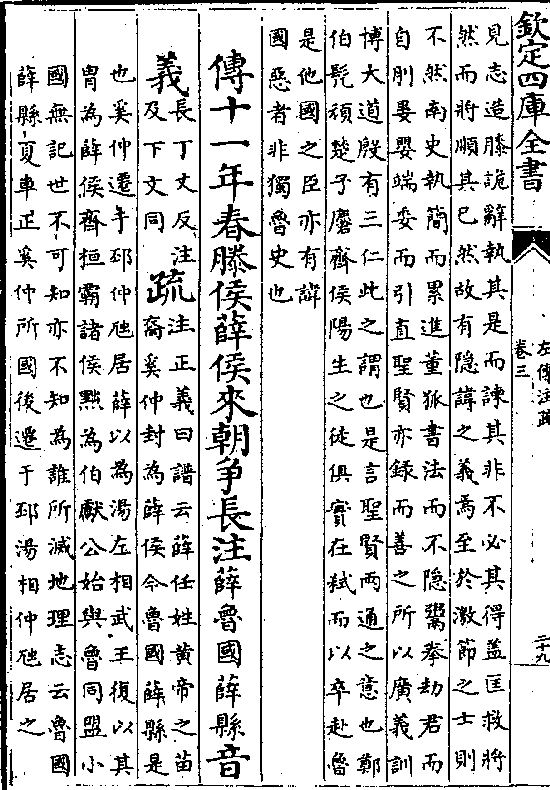 欽定四庫全書
左傳注疏
卷三
二十九
見志造膝詭辭執其是而諫其非不必其得盖匡救將
然而將順其已然故有隐諱之義焉至於激節之士則
不然南史執簡而累進董狐書法而不隐鬻拳劫君而
自刖晏嬰端委而引直聖賢亦録而善之所以廣義訓
博大道殷有三仁此之謂也是言聖賢兩通之意也鄭
伯髠頑楚子麇齊侯陽生之徒俱實在弑而以卒赴魯
是他國之臣亦有諱
國惡者非獨魯史也
傳十一年春滕侯薛侯來朝争長注薛魯國薛縣音
義
長丁丈反注
及下文同
疏
注正義曰譜云薛任姓黄帝之苗
裔奚仲封為薛侯今魯國薛縣是
也奚仲遷于邳仲虺居薛以為湯左相武王復以其
胄為薛侯齊桓霸諸侯黜為伯獻公始與魯同盟小
國無記世不可知亦不知為誰所滅地理志云魯國
薛縣夏車正奚仲所國後遷于邳湯相仲虺居之